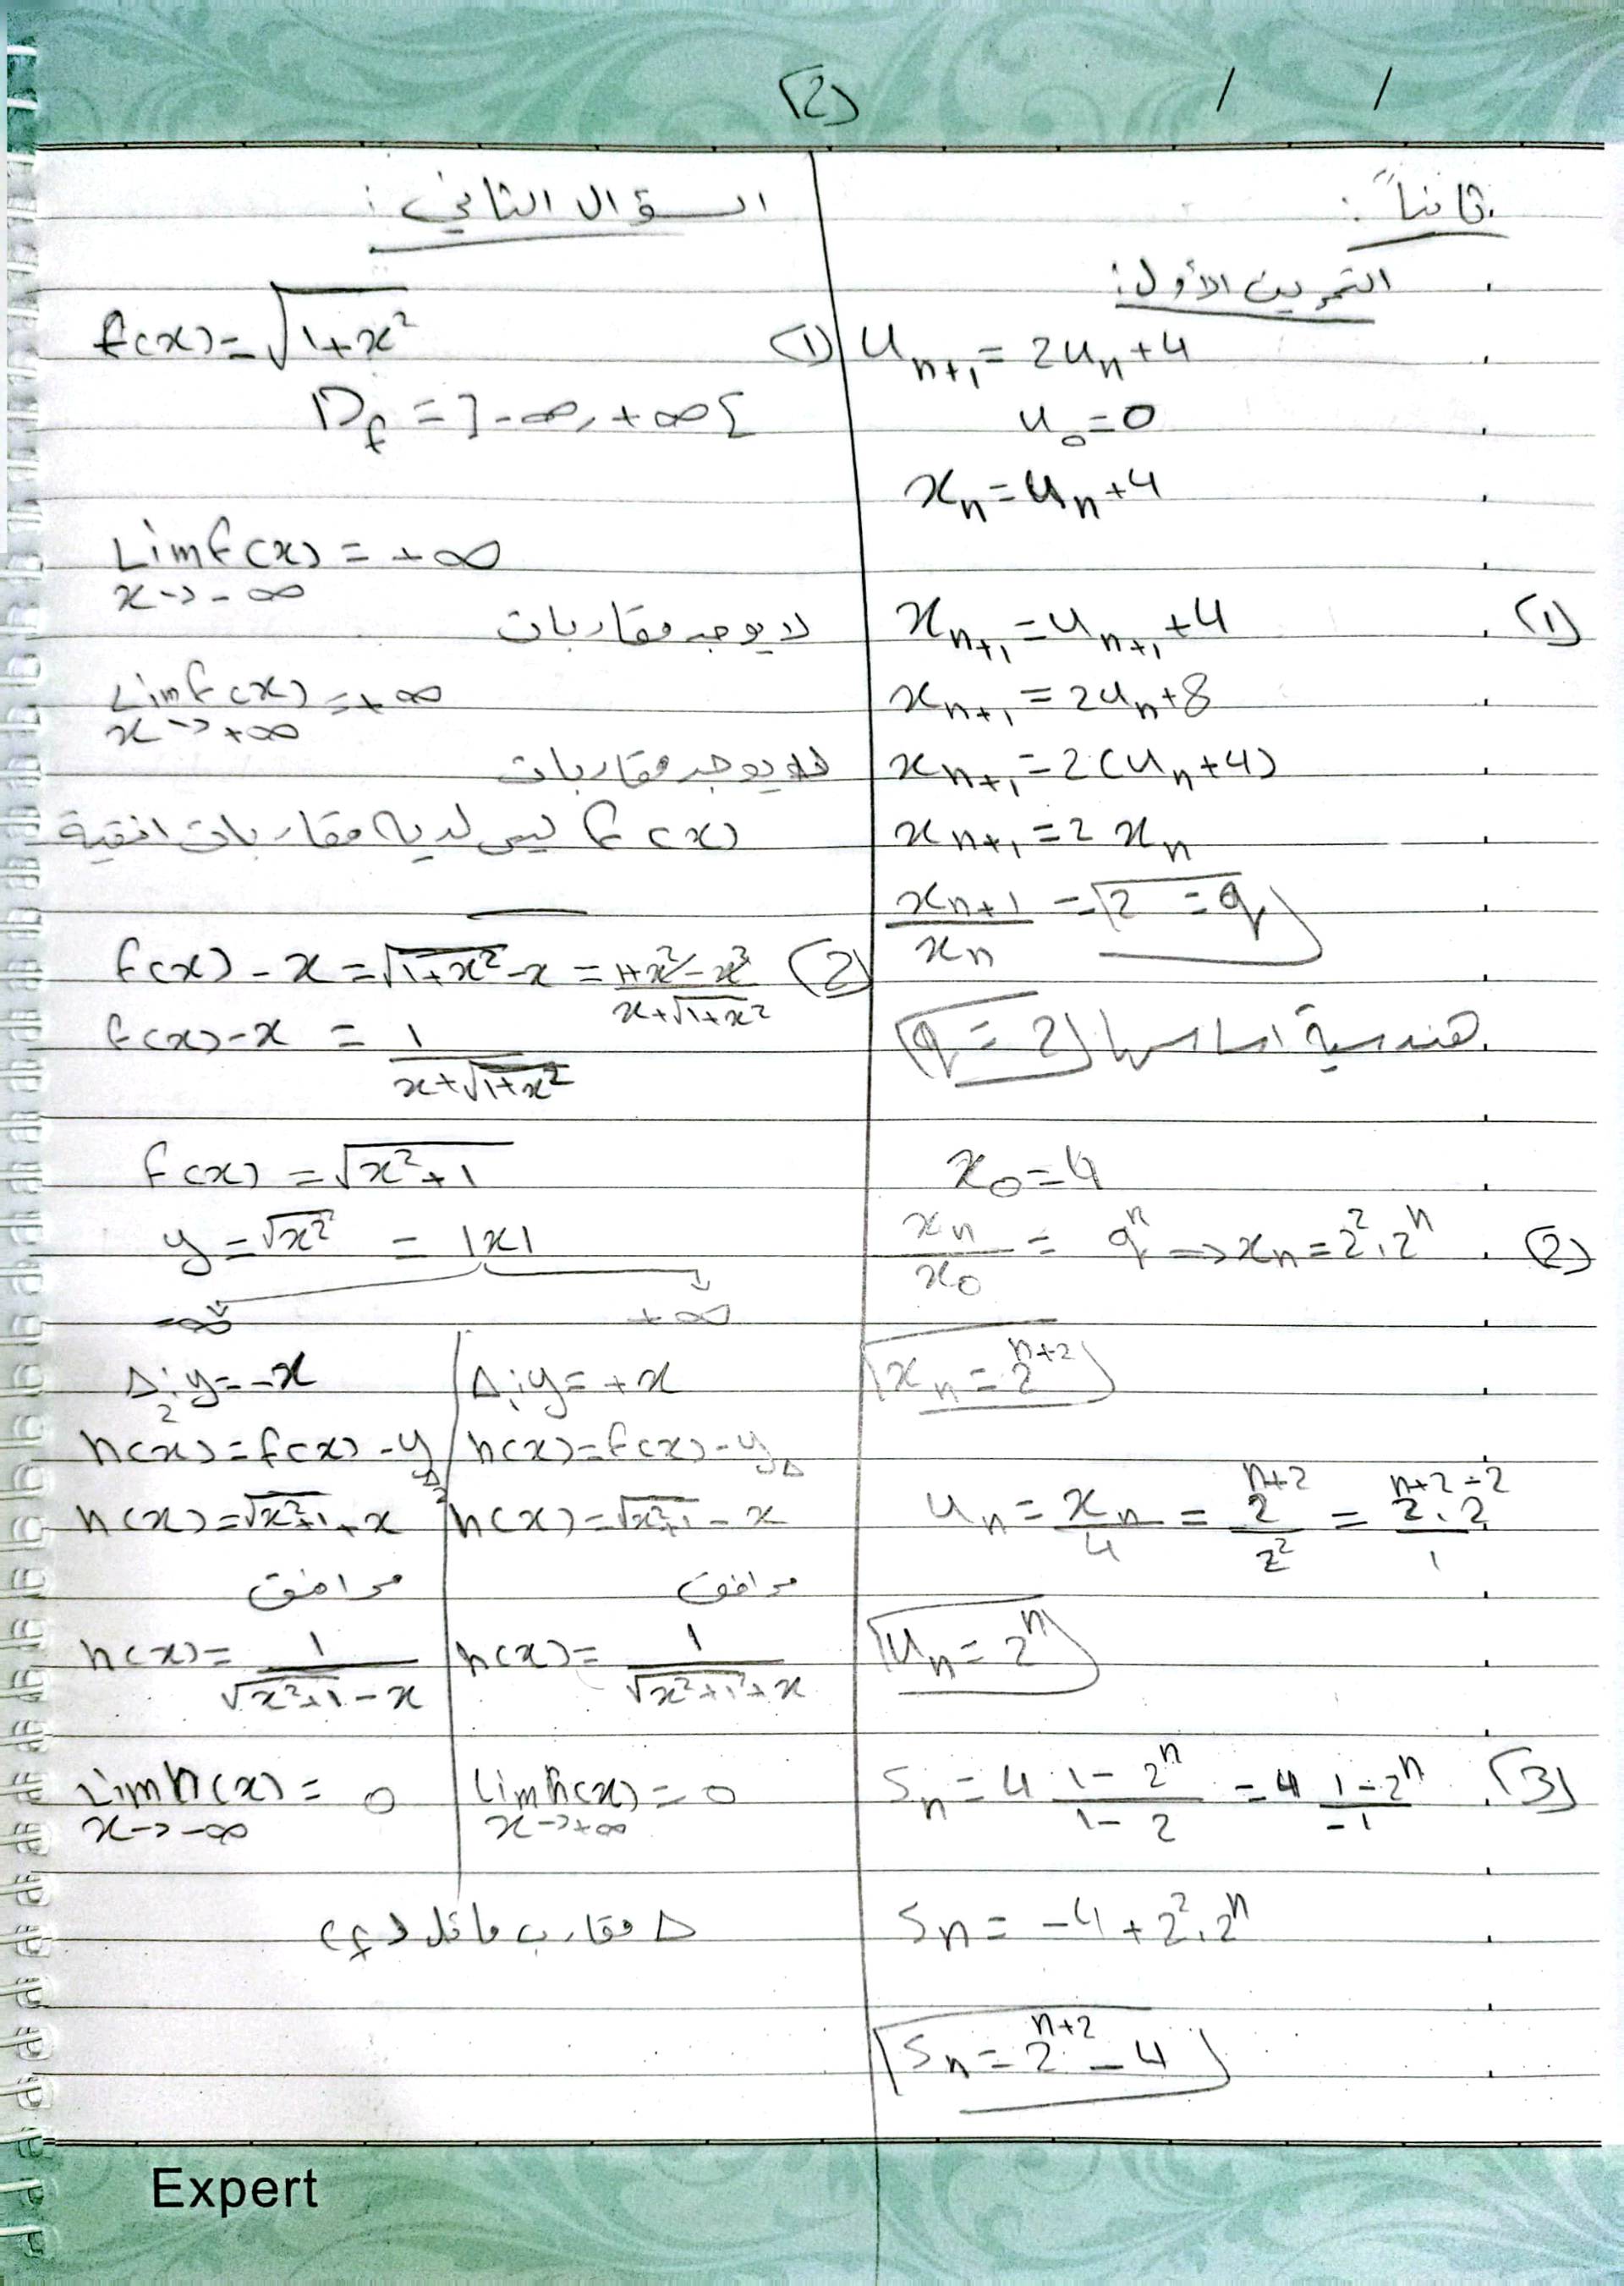 (2)
/ /
ثانياً:
التمرين الأول:
u_{n+1} = 2u_n + 4
u_0 = 0
x_n = u_n + 4
(1) x_{n+1} = u_{n+1} + 4
x_{n+1} = 2u_n + 8
x_{n+1} = 2(u_n + 4)
x_{n+1} = 2 x_n
x_{n+1}/x_n = 2 = q
هندسية اساسها q = 2
x_0 = 4
(2) x_n/x_0 = q^n => x_n = 2^2 . 2^n
x_n = 2^{n+2}
u_n = x_n/4 = 2^{n+2}/2^2 = 2^{n+2} . 2^{-2}/1
u_n = 2^n
(3) S_n = 4 (1 - 2^n)/(1 - 2) = 4 (1 - 2^n)/(-1)
S_n = -4 + 2^2 . 2^n
S_n = 2^{n+2} - 4
السؤال الثاني:
(1) f(x) = √(1+x^2)
D_f = ]-∞, +∞[
Lim f(x) = +∞
x→-∞
لا يوجد مقاربات
Lim f(x) = +∞
x→+∞
لا يوجد مقاربات
f(x) ليس لديه مقاربات افقية
(2) f(x) - x = √(1+x^2) - x = (1+x^2-x^2)/(x+√(1+x^2))
f(x) - x = 1/(x+√(1+x^2))
f(x) = √(x^2+1)
y = √(x^2) = |x|
-∞ +∞
Δ_1: y = +x
h(x) = f(x) - y_Δ
h(x) = √(x^2+1) - x
مرافق
h(x) = 1/(√(x^2+1)+x)
Lim h(x) = 0
x→+∞
Δ_2: y = -x
h(x) = f(x) - y_{Δ2}
h(x) = √(x^2+1) + x
مرافق
h(x) = 1/(√(x^2+1)-x)
Lim h(x) = 0
x→-∞
Δ مقارب مائل لـ
Expert